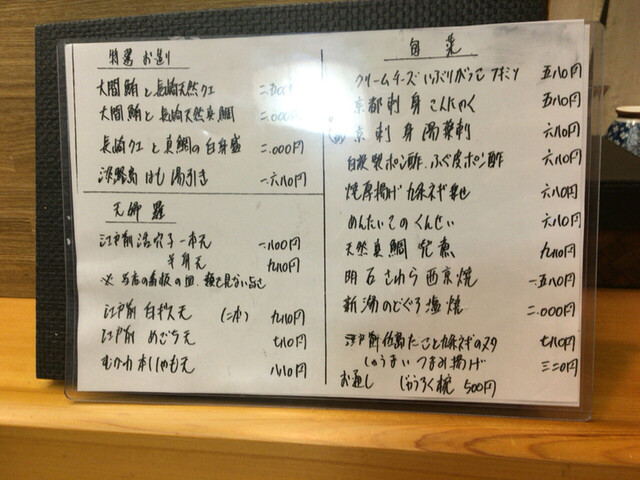 特選 お造り
大間鮪と長崎天然クエ
大間鮪と長崎天然真鯛 二.000円
長崎クエと真鯛の白身盛 二.000円
淡路島 はも 湯引き 一.六八0円
天婦羅
江戸前 活穴子 一本天 一.八00円
半身天 九八0円
江戸前 白ギス天 (二本) 九八0円
江戸前 めごち天 七八0円
むかわ 本ししゃも天 八八0円
旬菜
クリームチーズいぶりがっこ 五八0円
京都刺身こんにゃく 五八0円
京 刺身湯葉刺 六八0円
自家製ポン酢、ふぐ皮ポン酢 六八0円
焼厚揚げ 九条ネギ乗せ 六八0円
めんたいこのくんせい 六八0円
天然真鯛 兜煮 九八0円
明石さわら 西京焼 一.五八0円
新潟のどぐろ塩焼 二.000円
江戸前 佐島たこと九条ネギのヌタ 七八0円
しゅうまい つまみ揚げ 三二0円
お通し 500円